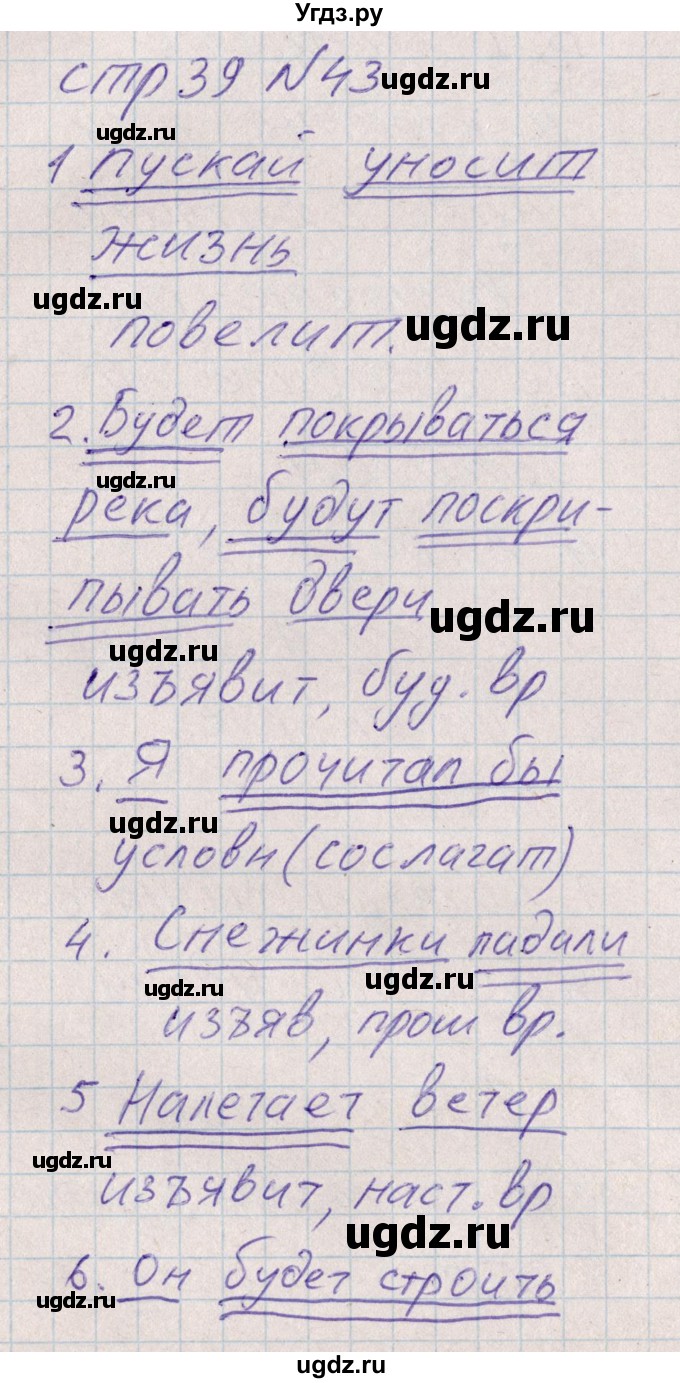 Угдз.ру
стр 39 №43
ugdz.ru
ugdz.ru
1 пускай уносит
жизнь
ugdz.ru
повелит.
ugdz.ru
2. Будет покрываться
ugdz.ru
река, будут поскри-
пывать двери
ugdz.ru
ugdz.ru
изъявит, буд. вр
3. Я прочитал бы
ugdz.ru
условн (сослагат)
4. Снежинки падали
ugdz.ru
ugdz.ru
изъяв, прош вр.
5 Налетает ветер
ugdz.ru
изъявит, наст. вр
ugdz.ru
6. Он будет строить
ugdz.ru
ugdz.ru